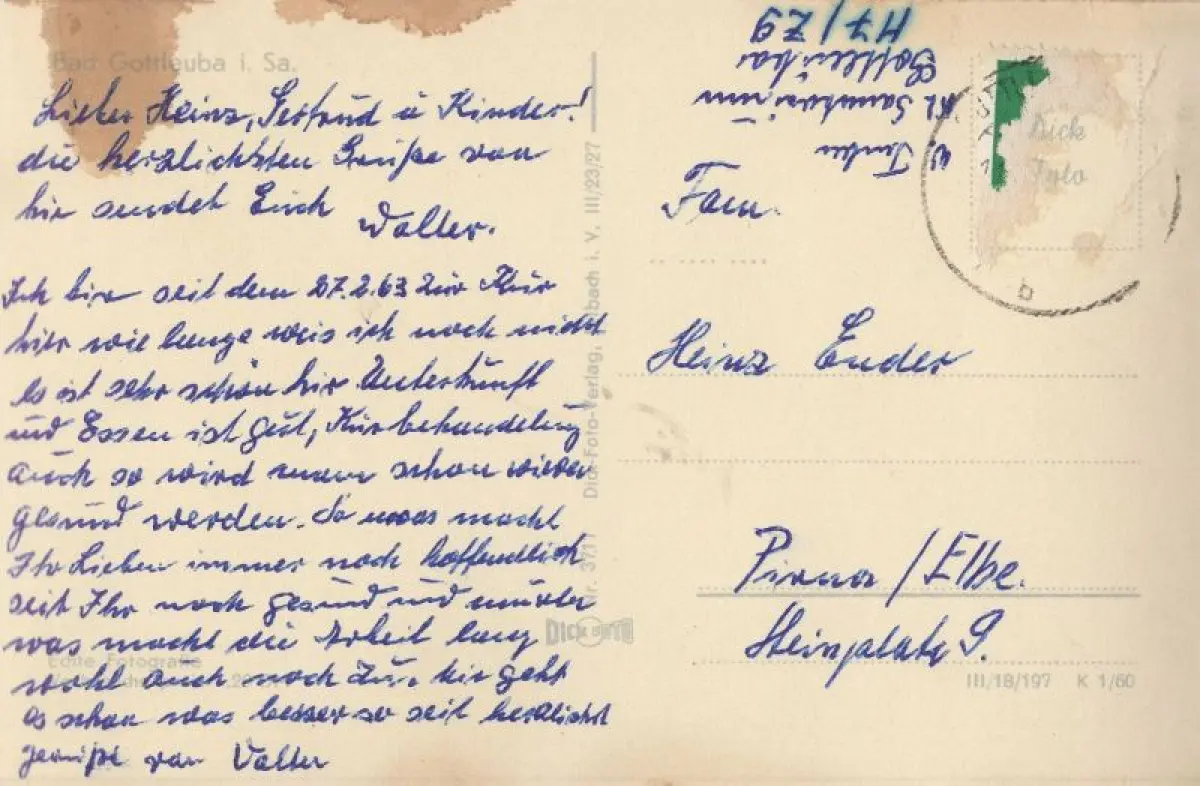 Bad Gottleuba i. Sa.
Lieber Heinz, Gertrud u Kinder!
die herzlichsten Grüße von
hir sendet Euch
Walter.
Ich bin seit dem 27.2.63 zur Kur
hier wie lange weis ich noch nicht
es ist sehr schön hir Unterkunft
und Essen ist gut, Kurbehandlung
auch so wird man schon wieder
gesund werden. So was macht
Ihr Lieben immer noch hoffendlich
seit Ihr noch gesund und munter
was macht die Arbeit lang
wohl auch noch zu. mir geht
es schon was besser so seit herzlichst
gegrüßt von Walter
Echte Fotografie
Dick-Foto-Verlag, bach i. V. III/23/27
Nr. 3731
DICK
W.
Kl Sanatorium
Gottleuba
H7/Z9
Dick
Foto
b
Fam.
Heinz Ender
Pirna/Elbe.
9.
III/18/197 K 1/60